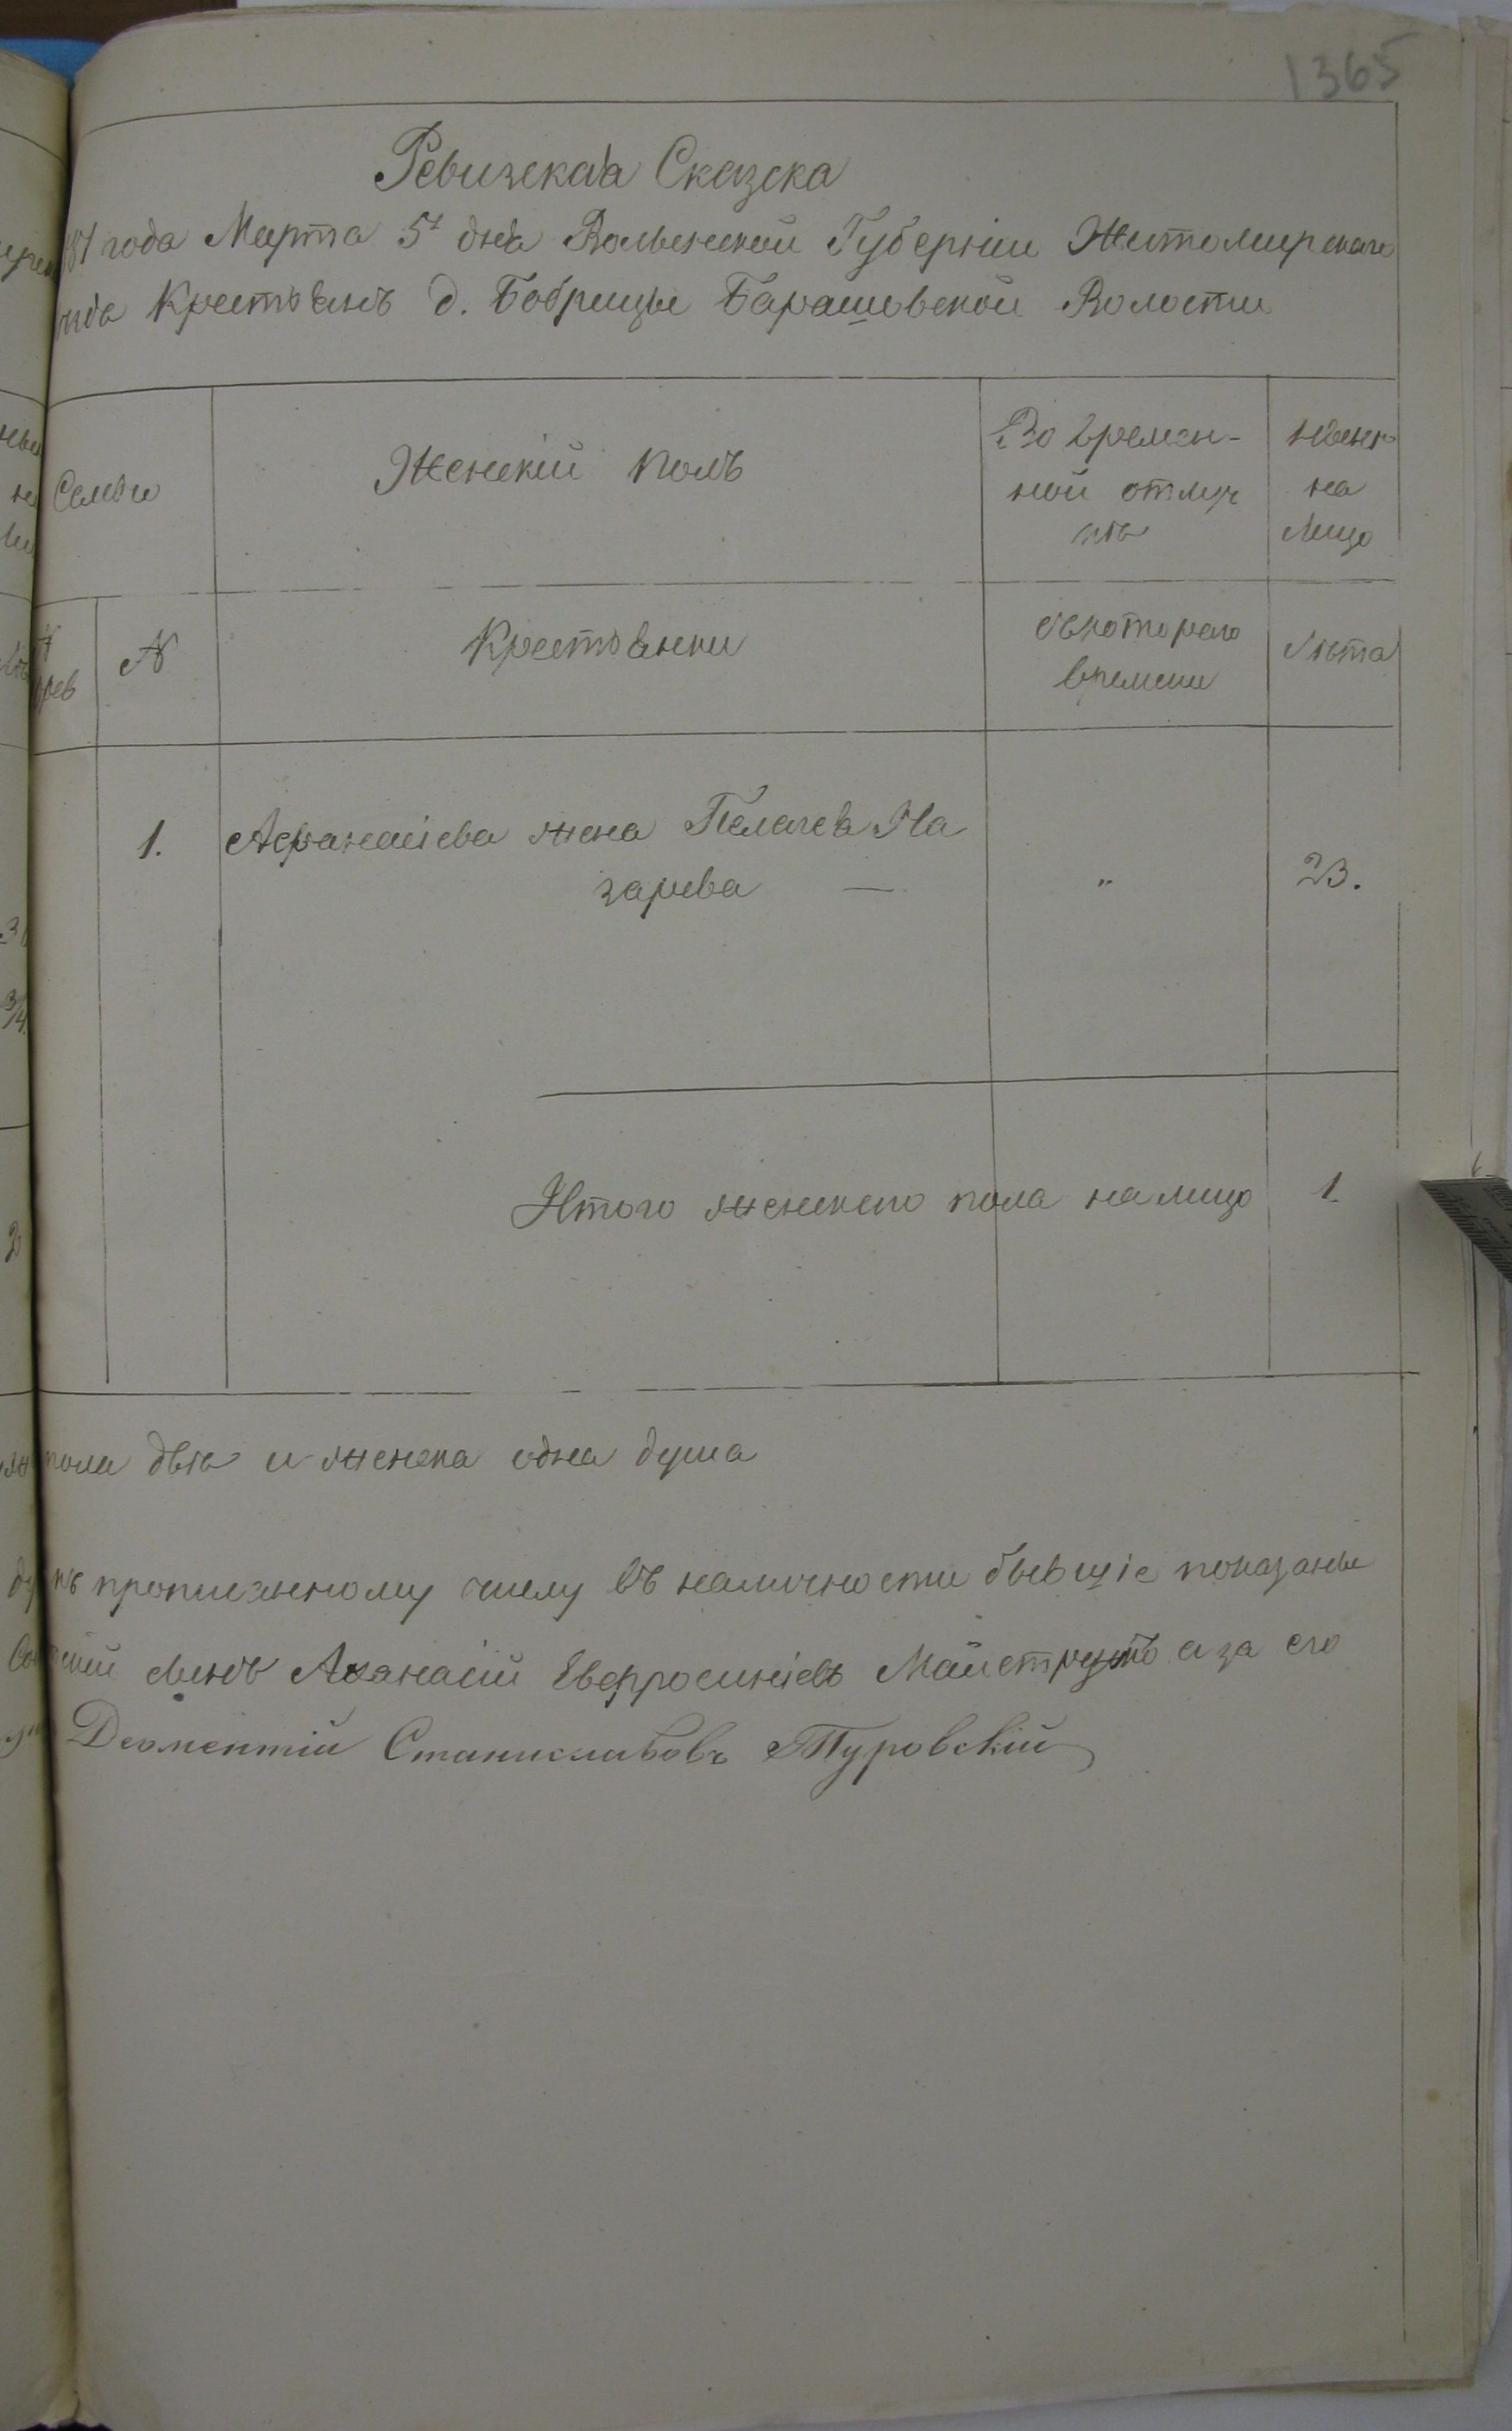 1365
Ревизская Сказска
года Марта 5 дня Волынской Губерніи Житомирскаго
Крестьянъ д. Бобрицы Барашовской Волости
Семьи
Женскій полъ
Во времен-
ной отлуч
кѣ
Нынѣ
на
лицо
N
Крестьянки
Съ котораго
времени
Лѣта
1.
Афанасіева жена Пелагея На
зарева —
"
23.
Итого женскаго пола на лицо 1
пола двѣ и женска одна душа
прописанному числу въ наличности бывщіе показаны
Афанасій Евфросиніевъ Майструкъ а за его
Деометтій Станиславовъ Туровскій